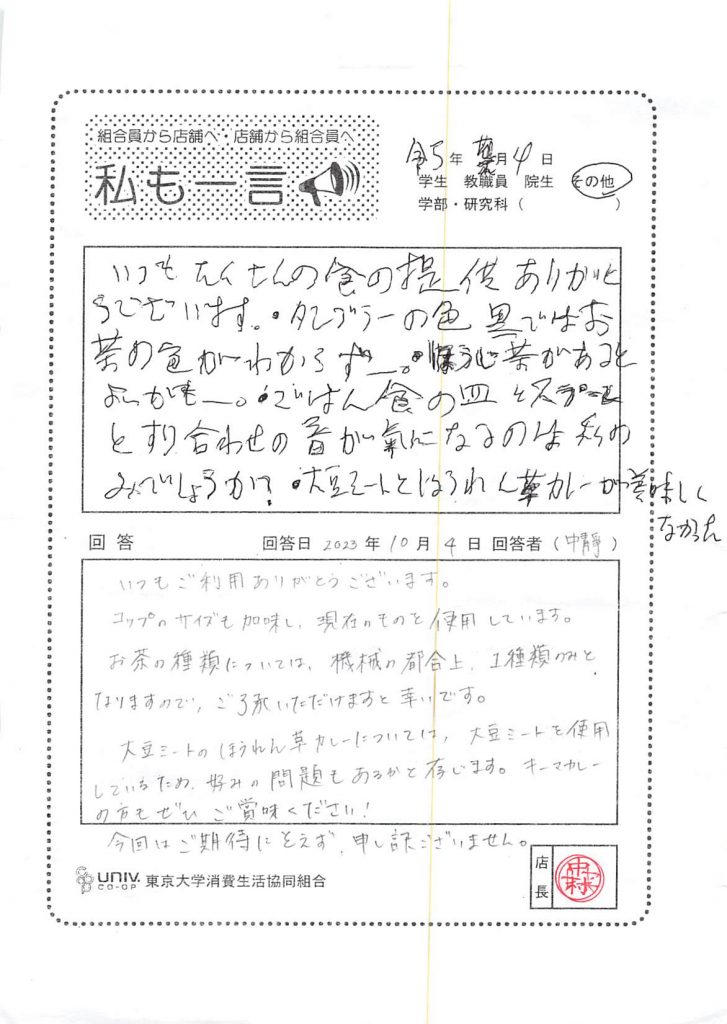 組合員から店舗へ・店舗から組合員へ
私も一言
令5年 月4日
学生 教職員 院生 その他
学部・研究科( )
いつもたくさんの食の提供ありがと
うございます。・タンブラーの色 黒ではお
茶の色がわからず―。・ほうじ茶があると
よいかも―。・ごはん食の皿とスプーン
とすり合わせの音が氣になるのは私の
みでしょうか?・大豆ミートとほうれん草カレーが美味しく
なかった
回答 回答日 2023年10月4日 回答者(中靜)
いつもご利用ありがとうございます。
コップのサイズも加味し、現在のものを使用しています。
お茶の種類については、機械の都合上、1種類のみと
なりますので、ご了承いただけますと幸いです。
大豆ミートのほうれん草カレーについては、大豆ミートを使用
しているため、好みの問題もあるかと存じます。キーマカレー
の方もぜひご賞味ください!
今回はご期待にそえず、申し訳ございません。
UNIV. CO-OP 東京大学消費生活協同組合
店長